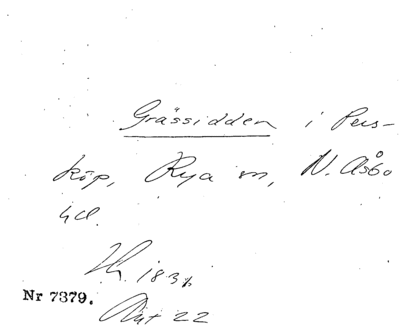 Grässidden i Pers-
köp, Rya sn, N. Åsbo
hd.
Lh. 1831
Nr 7379.
Akt 22